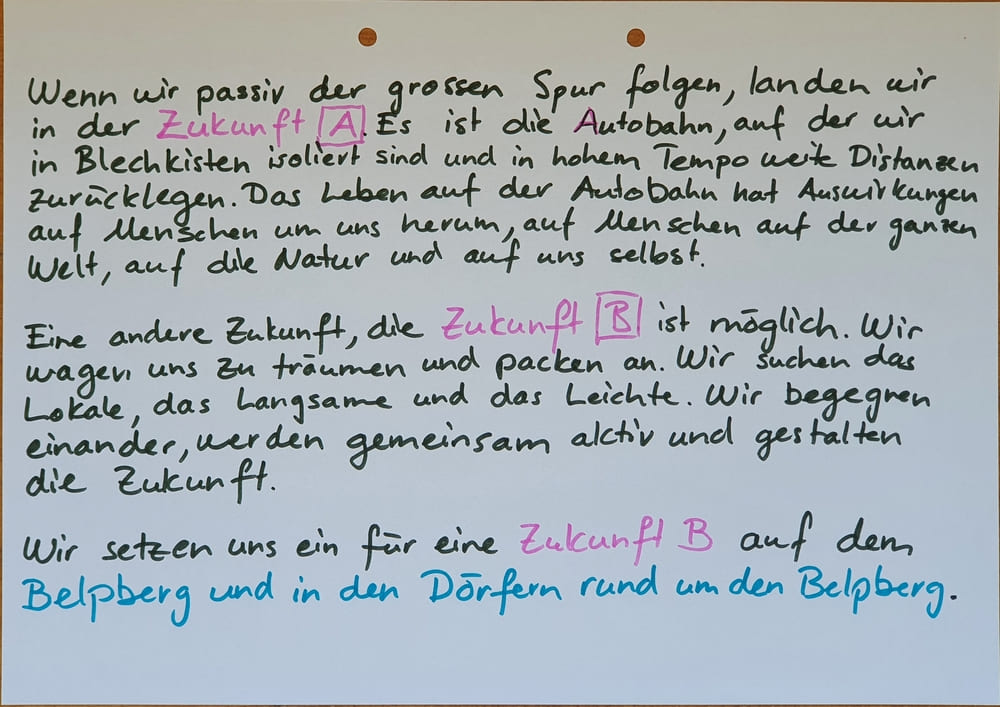 Wenn wir passiv der grossen Spur folgen, landen wir
in der Zukunft A. Es ist die Autobahn, auf der wir
in Blechkisten isoliert sind und in hohem Tempo weite Distanzen
zurücklegen. Das Leben auf der Autobahn hat Auswirkungen
auf Menschen um uns herum, auf Menschen auf der ganzen
Welt, auf die Natur und auf uns selbst.
Eine andere Zukunft, die Zukunft B ist möglich. Wir
wagen uns zu träumen und packen an. Wir suchen das
Lokale, das Langsame und das Leichte. Wir begegnen
einander, werden gemeinsam aktiv und gestalten
die Zukunft.
Wir setzen uns ein für eine Zukunft B auf dem
Belpberg und in den Dörfern rund um den Belpberg.